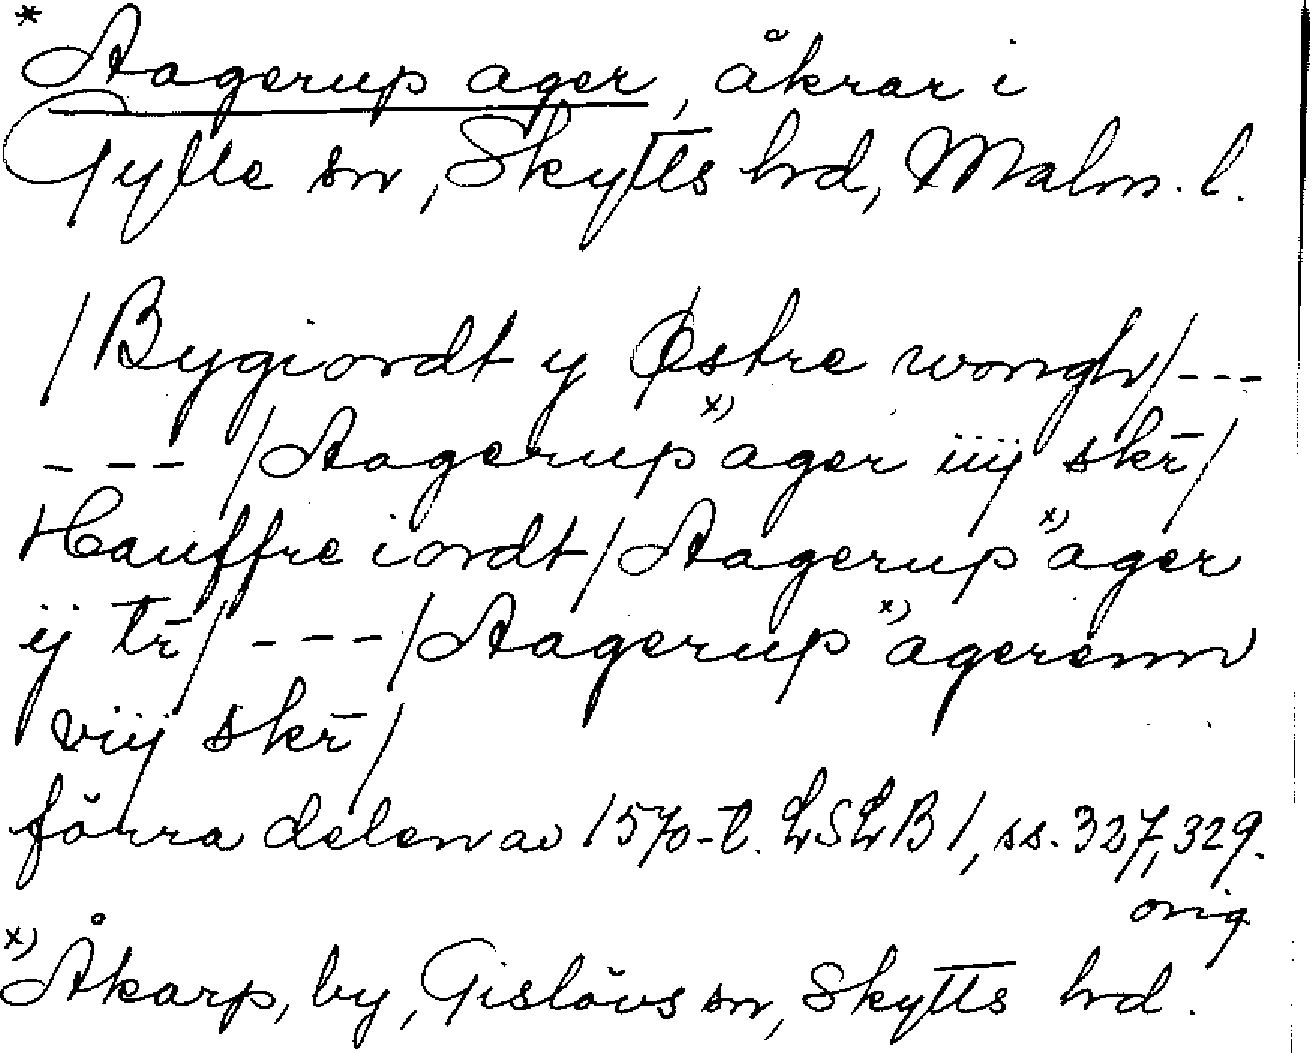 * Aagerup ager, åkrar i
Gylle sn, Skytts hd, Malm. l.
/Bygiordt y Østre wongh/---
--- /Aagerup x) ager iiij skr̄/
Hauffre iordt/Aagerup x) ager
ij tr̄/ ---/Aagerup x) agerenn
viij skr̄/
förra delen av 1570-t. LSLB 1, ss. 327, 329.
orig
x) Åkarp, by, Gislövs sn, Skytts hd.